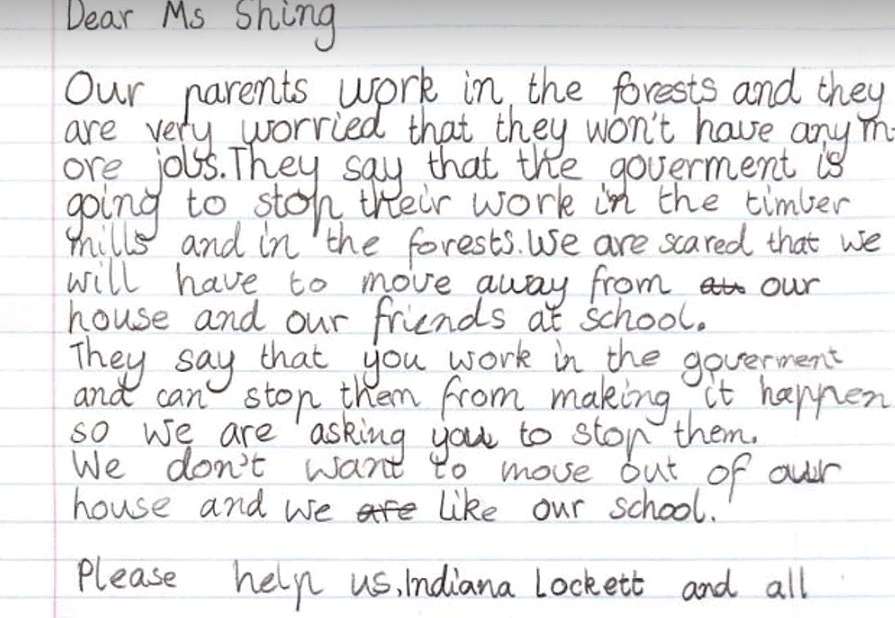 Dear Ms Shing
Our parents work in the forests and they
are very worried that they won't have any m-
ore jobs. They say that the goverment is
going to stop their work in the timber
mills and in the forests. We are scared that we
will have to move away from our
house and our friends at school.
They say that you work in the goverment
and can stop them from making it happen
so we are asking you to stop them.
We don't want to move out of our
house and we are like our school.
Please help us, Indiana Lockett and all